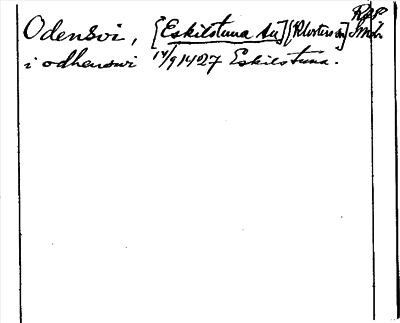 Odensvi, [Eskilstuna su] [Klosters sn]
i odhenswi 14/9 1427 Eskilstuna.